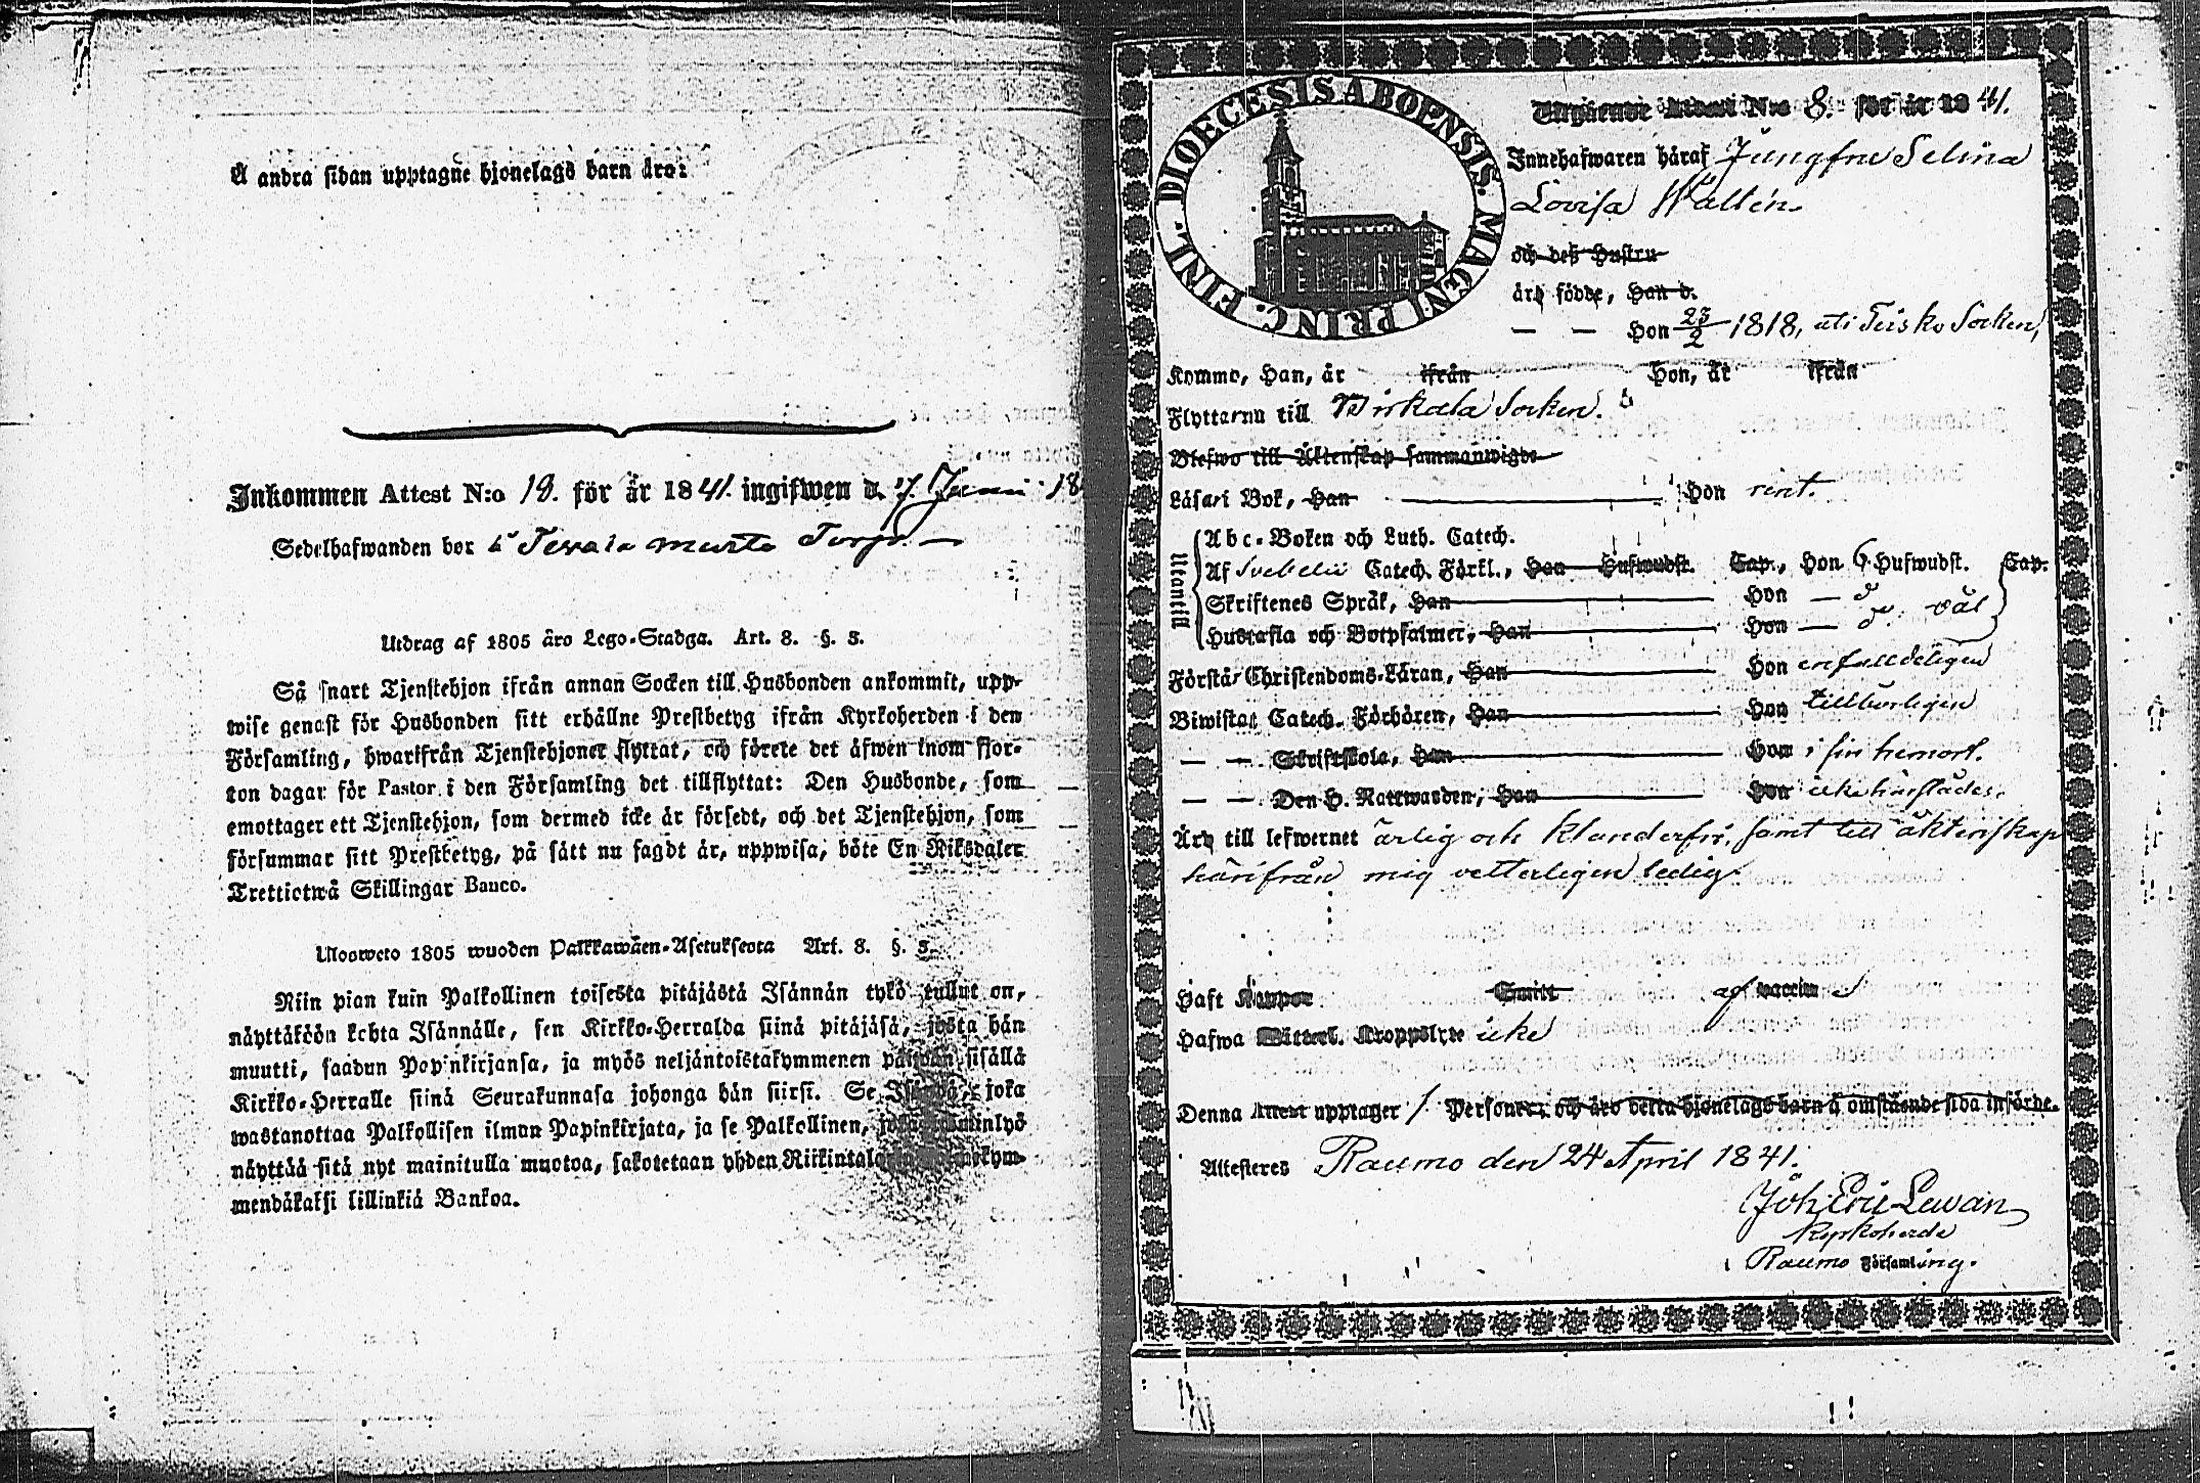 Å andra sidan upptagne hjonelags barn äro:
Inkommen Attest N:o 19. för år 1841. ingifwen d. 7. Juni 18
Sedelhafwanden bor å Torp.
Utdrag af 1805 åro Lego-Stadga. Art. 8. §. 3.
Så snart Tjenstehjon ifrån annan Socken till Husbonden ankommit, upp-
wise genast för Husbonden sitt erhållne Prestbetyg ifrån Kyrkoherden i den
Församling, hwarifrån Tjenstehjonet flyttat, och förete det åfwen inom fjor-
ton dagar för Pastor i den Församling det tillflyttat: Den Husbonde, som
emottager ett Tjenstehjon, som dermed icke är försedt, och det Tjenstehjon, som
försummar sitt Prestbetyg, på sätt nu sagdt är, uppwisa, böte En Riksdaler
Trettiotwå Skillingar Banco.
Uloosweto 1805 wuoden Palkkawäen-Asetuksesta Art. 8. §. 3.
Niin pian kuin Palkollinen toisesta pitäjästä Isännän tykö tullut on,
näyttäköön kohta Isännälle, sen Kirkko-Herralda siinä pitäjäsä, josta hän
muutti, saadun Papinkirjansa, ja myös neljäntoistakymmenen päiwän sisällä
Kirkko-Herralle siinä Seurakunnasa johonga hän siirsi. Se Isändä, joka
wastanottaa Palkollisen ilman Papinkirjata, ja se Palkollinen,
näyttää sitä nyt mainitulla muotoa, sakotetaan yhden
mendäkaksi killinkiä Bankoa.
DIOECESIS ABOENSIS. MAGNI PRINC. FINL.
Utgående Attest N:o 8. för år 1841.
Innehafwaren häraf Jungfru Selma
Lovisa Wallén.
och deß Hustru
äro födde, Han d.
— — Hon 23/2 1818, uti Teisko Socken,
Komme, Han, år ifrån Hon, år ifrån
Flyttarnu till Birkala Socken.
Blefwo till Äktenskap sammanwigde
Läsa i Bok, Han Hon rent.
Utantill
Abc-Boken och Luth. Catech.
Af Svebelii Catech. Förkl., Han Hufwudst. Cap., Hon 6 Hufwudst. Cap.
Skriftenes Språk, Han Hon — d
Hustafla och Botpsalmer, Han Hon — d. väl
Förstår Christendoms-Läran, Han Hon enfaldeligen
Biwistat Catech. Förhören, Han Hon tillbörligen
— — Skriftskola, Han Hon i sin hemort.
— — Den H. Nattwarden, Han Hon icke härstädes.
Äro till lefwernet ärlig och klanderfri, samt till äktenskap
härifrån mig vetterligen ledig.
Haft Koppor Smitt af vaccin
Hafwa Witterl. Kroppslyte icke
Denna Attest upptager 1. Personer: och äro detta hjonelags barn å omstående sida införde.
Attesteres Raumo den 24 April 1841.
Joh: Eric Lewan
Kyrkoherde
i Raumo Församling.